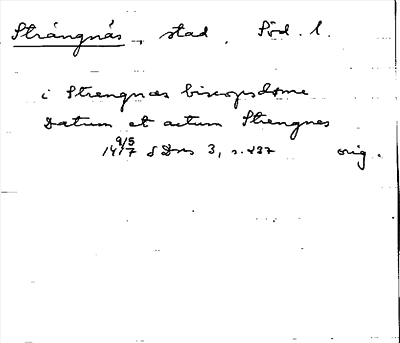 Strängnäs, stad. Söd. l.
i Strengnæs biscopsdøme
Datum et actum Strengnes
9/5
1417 SDns 3, s. 237 orig.